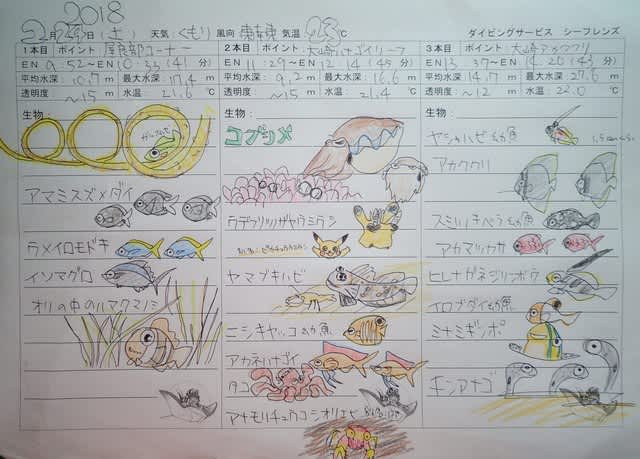 2018
2月24日(土) 天気:くもり 風向 気温 23℃ ダイビングサービス シーフレンズ
1本目 ポイント
EN 9:52~EX 10:33 (41分)
平均水深:10.7m 最大水深:17.4m
透明度:~15m 水温:21.6℃
生物:
がんばれ
アマミスズメダイ
ウメイロモドキ
イソマグロ
オリの中のハマクマノミ
2本目 ポイント 大崎ハナゴイリーフ
EN 11:29~EX 12:14 (45分)
平均水深:9.2m 最大水深:16.6m
透明度:~15m 水温:21.4℃
生物:
コブシメ
ウデフリツノザヤウミウシ
ヤマブキハゼ
ニシキヤッコ幼魚
アカネハナゴイ
タコ
アナモリチュウコシオリエビ
3本目 ポイント 大崎アカククリ
EN 13:37~EX 14:20 (43分)
平均水深:14.7m 最大水深:27.6m
透明度:~12m 水温:22.0℃
生物:
ヤシャハゼ幼魚
アカククリ
スミツキベラ幼魚
アカマツカサ
ヒレナガネジリンボウ
イロブダイ幼魚
ミナミギンポ
キンアナゴ